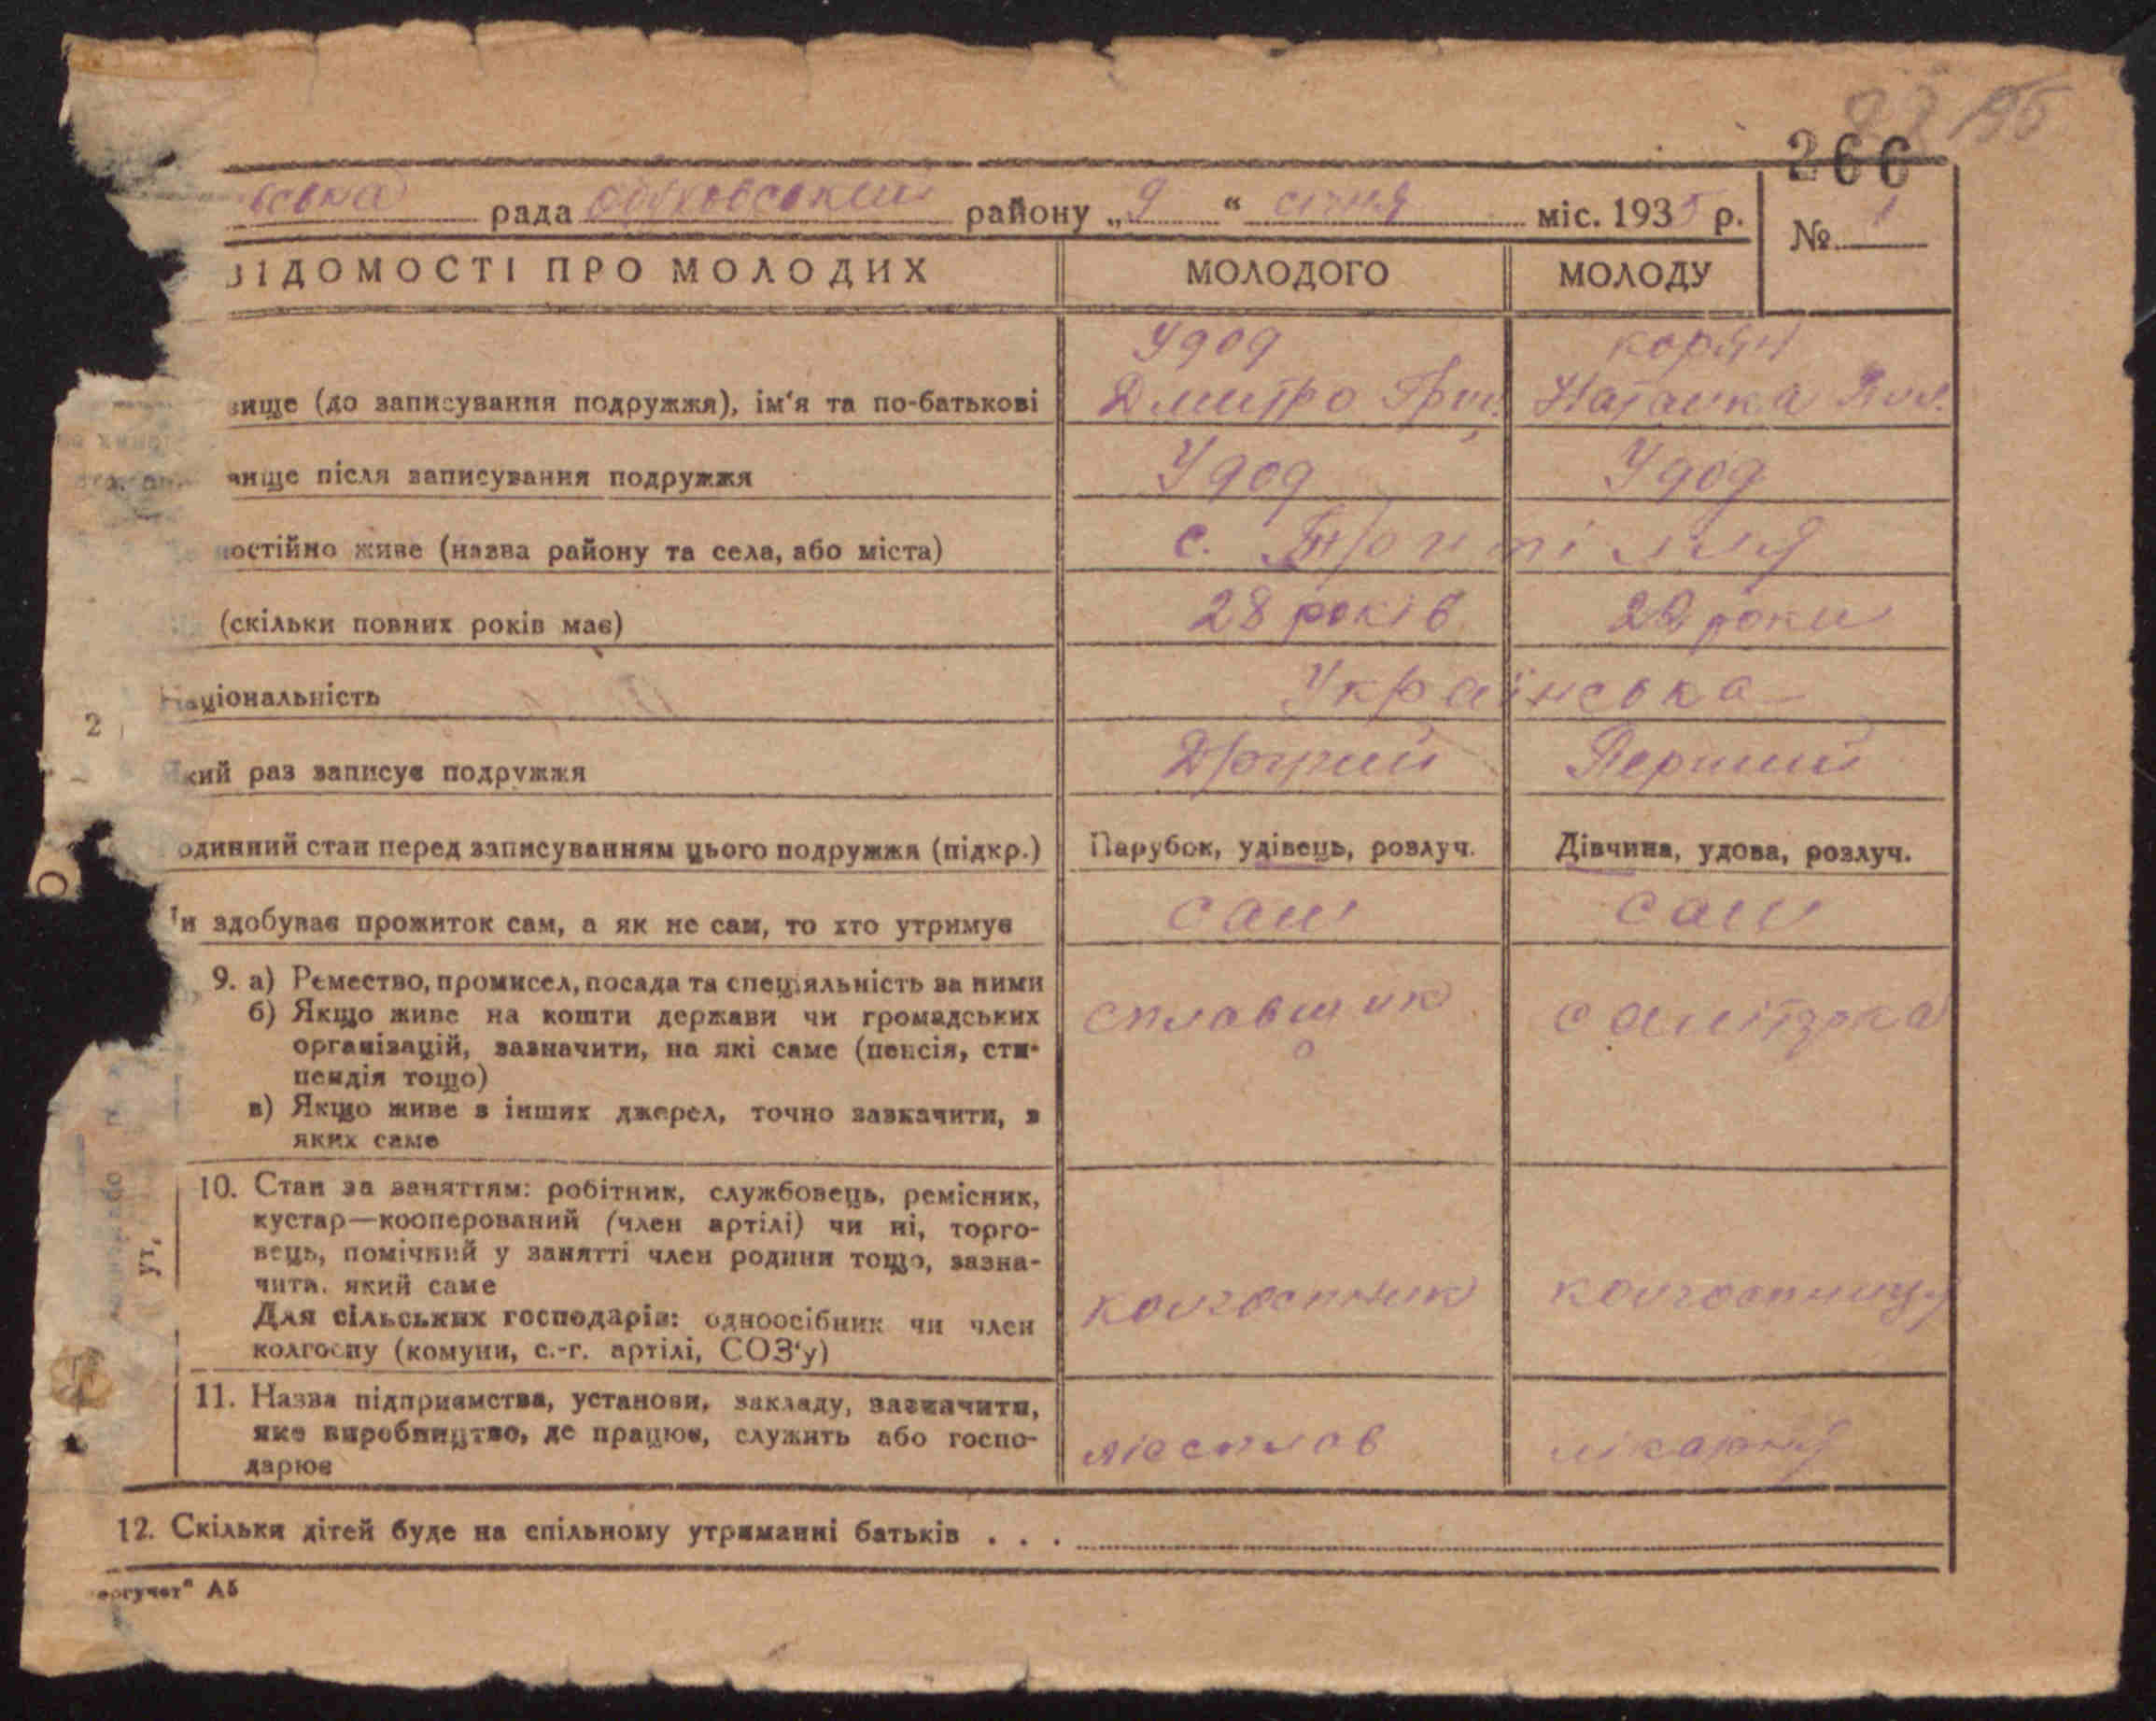 266
ська рада району „9“ січня міс. 1935 р. № 1
ВІДОМОСТІ ПРО МОЛОДИХ МОЛОДОГО МОЛОДУ
Удод
вище (до записування подружжя), ім'я та по-батькові Дмитро Гри. Наталка
вище після записування подружжя Удод Удод
постійно живе (назва району та села, або міста) с.
(скільки повних років має) 28 років 22 роки
Національність Українська
який раз записує подружжя Другий Перший
одинний стан перед записуванням цього подружжя (підкр.) Парубок, удівець, розлуч. Дівчина, удова, розлуч.
Чи здобуває прожиток сам, а як не сам, то хто утримує сам сам
9. а) Ремество, промисел, посада та спеціяльність за ними
б) Якщо живе на кошти держави чи громадських сплавщик санітарка
організацій, зазначити, на які саме (пенсія, сти-
пендія тощо)
в) Якщо живе з інших джерел, точно зазначити, з
яких саме
10. Стан за заняттям: робітник, службовець, ремісник,
кустар—кооперований (член артілі) чи ні, торго-
вець, помічний у занятті член родини тощо, зазна-
чити, який саме колгоспник колгоспниця
Для сільських господарів: одноосібник чи член
колгоспу (комуни, с.-г. артілі, СОЗ'у)
11. Назва підприємства, установи, закладу, зазначити,
яке виробництво, де працює, служить або госпо- лісосплав лікарня
дарює
12. Скільки дітей буде на спільному утриманні батьків . . .
ргучет" А5
2
ут,